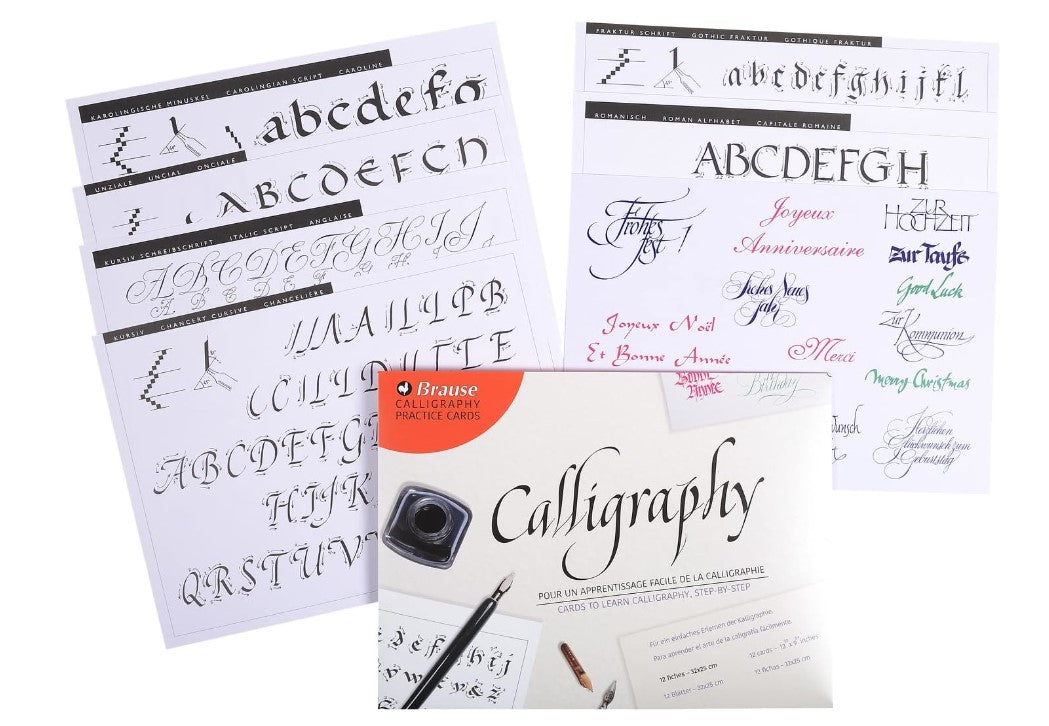 KAROLINGISCHE MINUSKEL CAROLINGIAN SCRIPT CAROLINE
abcdefg
UNZIALE UNCIAL ONCIALE
ABCDEFGH
KURSIV SCHREIBSCHRIFT ITALIC SCRIPT ANGLAISE
ABCDEFGHIJ
KURSIV CHANCERY CURSIVE CHANCELIÈRE
ABCDEFG
HIJK
QRSTUV
FRAKTUR SCHRIFT GOTHIC FRAKTUR GOTHIQUE FRAKTUR
abcdefghijkl
ROMANISCH ROMAN ALPHABET CAPITALE ROMAINE
ABCDEFGH
Frohes
fest !
Joyeux
Anniversaire
ZUR
HOCHZEIT
zur Taufe
Good Luck
Frohes Neues
Jahr
Zur
Kommunion
Joyeux Noël
Et Bonne Année
Merci
Merry Christmas
Bonne
Année
Birthday
Herzlichen
Glückwunsch zum
Geburtstag
Brause
CALLIGRAPHY
PRACTICE CARDS
Calligraphy
POUR UN APPRENTISSAGE FACILE DE LA CALLIGRAPHIE
CARDS TO LEARN CALLIGRAPHY, STEP-BY-STEP
Für ein einfaches Erlernen der Kalligraphie.
Para aprender el arte de la caligrafia facilmente.
12 fiches - 32x23 cm
12 cards - 12" x 9" inches
12 Blätter - 32x23 cm
12 fichas - 32x23 cm